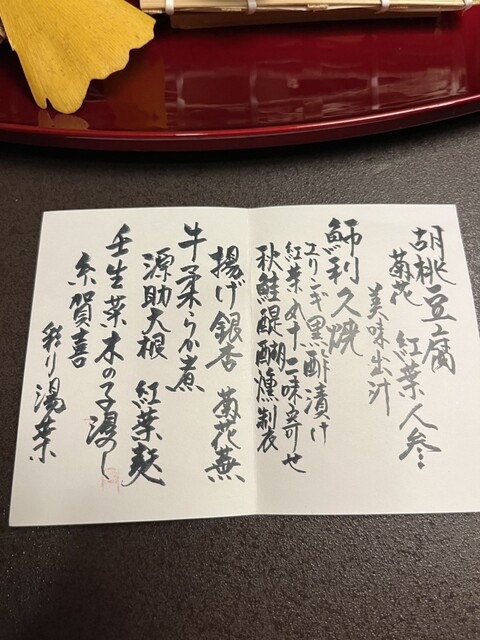 胡桃豆腐
菊花 紅葉人参
美味出汁
鰤利久焼
エリンギ黒酢漬け
紅葉丸十二味寄せ
秋鮭醍醐燻製衣
揚げ銀杏 菊花蕪
牛柔らか煮
源助大根 紅葉麩
壬生菜木の子浸し
糸賀喜
彩り湯葉